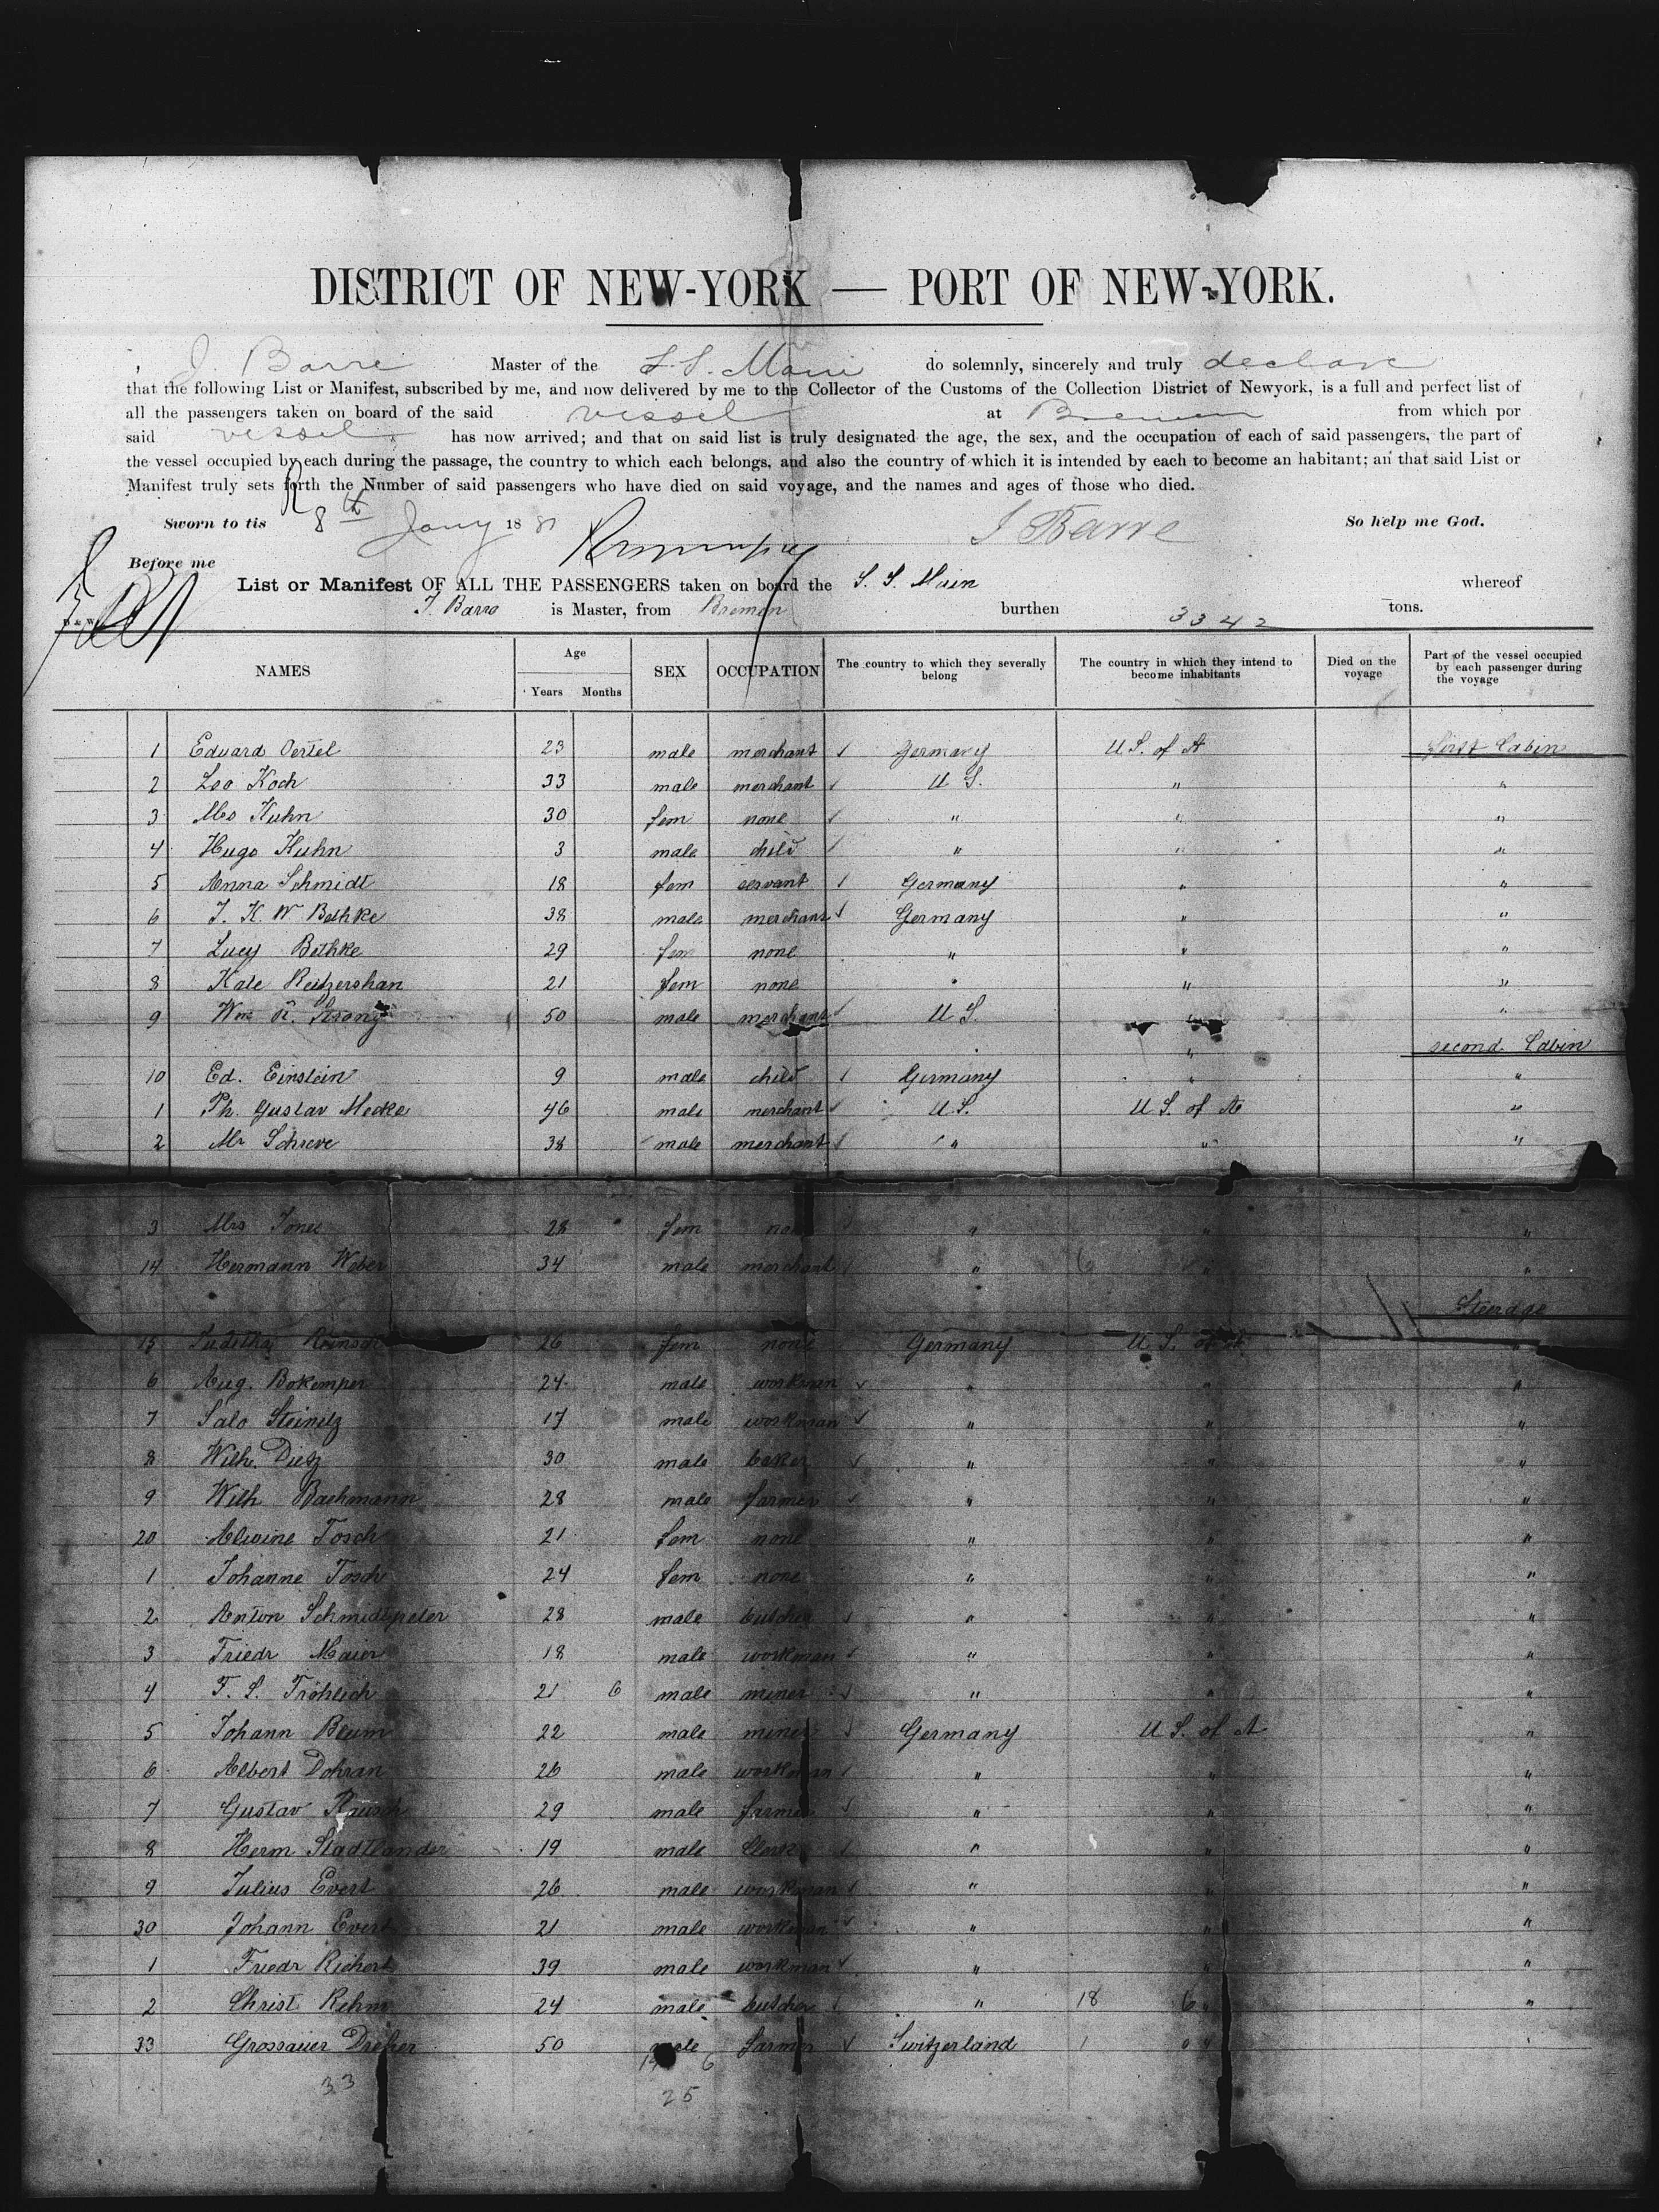 DISTRICT OF NEW-YORK — PORT OF NEW-YORK.
J. Barre Master of the S.S. Main do solemnly, sincerely and truly declare
that the following List or Manifest, subscribed by me, and now delivered by me to the Collector of the Customs of the Collection District of Newyork, is a full and perfect list of
all the passengers taken on board of the said vessel at Bremen from which por
said vessel has now arrived; and that on said list is truly designated the age, the sex, and the occupation of each of said passengers, the part of
the vessel occupied by each during the passage, the country to which each belongs, and also the country of which it is intended by each to become an habitant; an that said List or
Manifest truly sets forth the Number of said passengers who have died on said voyage, and the names and ages of those who died.
Sworn to tis 8th Jany 188 J Barre So help me God.
Before me
List or Manifest OF ALL THE PASSENGERS taken on board the S. S. Main whereof
J. Barre is Master, from Bremen burthen 3342 tons.
NAMES Age Years Months SEX OCCUPATION The country to which they severally belong The country in which they intend to become inhabitants Died on the voyage Part of the vessel occupied by each passenger during the voyage
1 Eduard Oertel 23 male merchant Germany U S. of A first Cabin
2 Leo Koch 33 male merchant U S. " "
3 Mrs Kuhn 30 fem none " " "
4 Hugo Kuhn 3 male child " " "
5 Anna Schmidt 18 fem servant Germany " "
6 J. K. W Bethke 38 male merchant Germany " "
7 Lucy Bethke 29 fem none " " "
8 Kate 21 fem none " " "
9 Wm R. Strong 50 male merchant U S. " "
" second Cabin
10 Ed. Einstein 9 male child Germany " "
1 Ph. Gustav Mecke 46 male merchant U S. U S. of A "
2 Mr Schreve 38 male merchant " " "
3 Mrs Jones 28 fem none " " "
14 Hermann Weber 34 male merchant " 6 " "
Steerage
15 26 fem none Germany U S. of A "
6 Aug. Bokemper 24 male workman " " "
7 Salo Steinitz 17 male workman " " "
8 Wilh. Dietz 30 male baker " " "
9 Wilh Bachmann 28 male farmer " " "
20 Alwine Tosch 21 fem none " " "
1 Johanne Tosch 24 fem none " " "
2 Anton Schmidtpeter 28 male butcher " " "
3 Friedr Maier 18 male workman " " "
4 F. S. Fröhlich 21 6 male miner " " "
5 Johann Blum 22 male miner Germany U S. of A "
6 Albert Dohran 26 male workman " " "
7 Gustav Rausch 29 male farmer " " "
8 Herm Stadtlander 19 male Clerk " " "
9 Julius Evert 26 male workman " " "
30 Johann Evert 21 male workman " " "
1 Friedr Richert 39 male workman " " "
2 Christ Rehm 24 male butcher " 18 6 " "
33 Grossauer Dreher 50 male farmer Switzerland 1 "
33 19 6
25